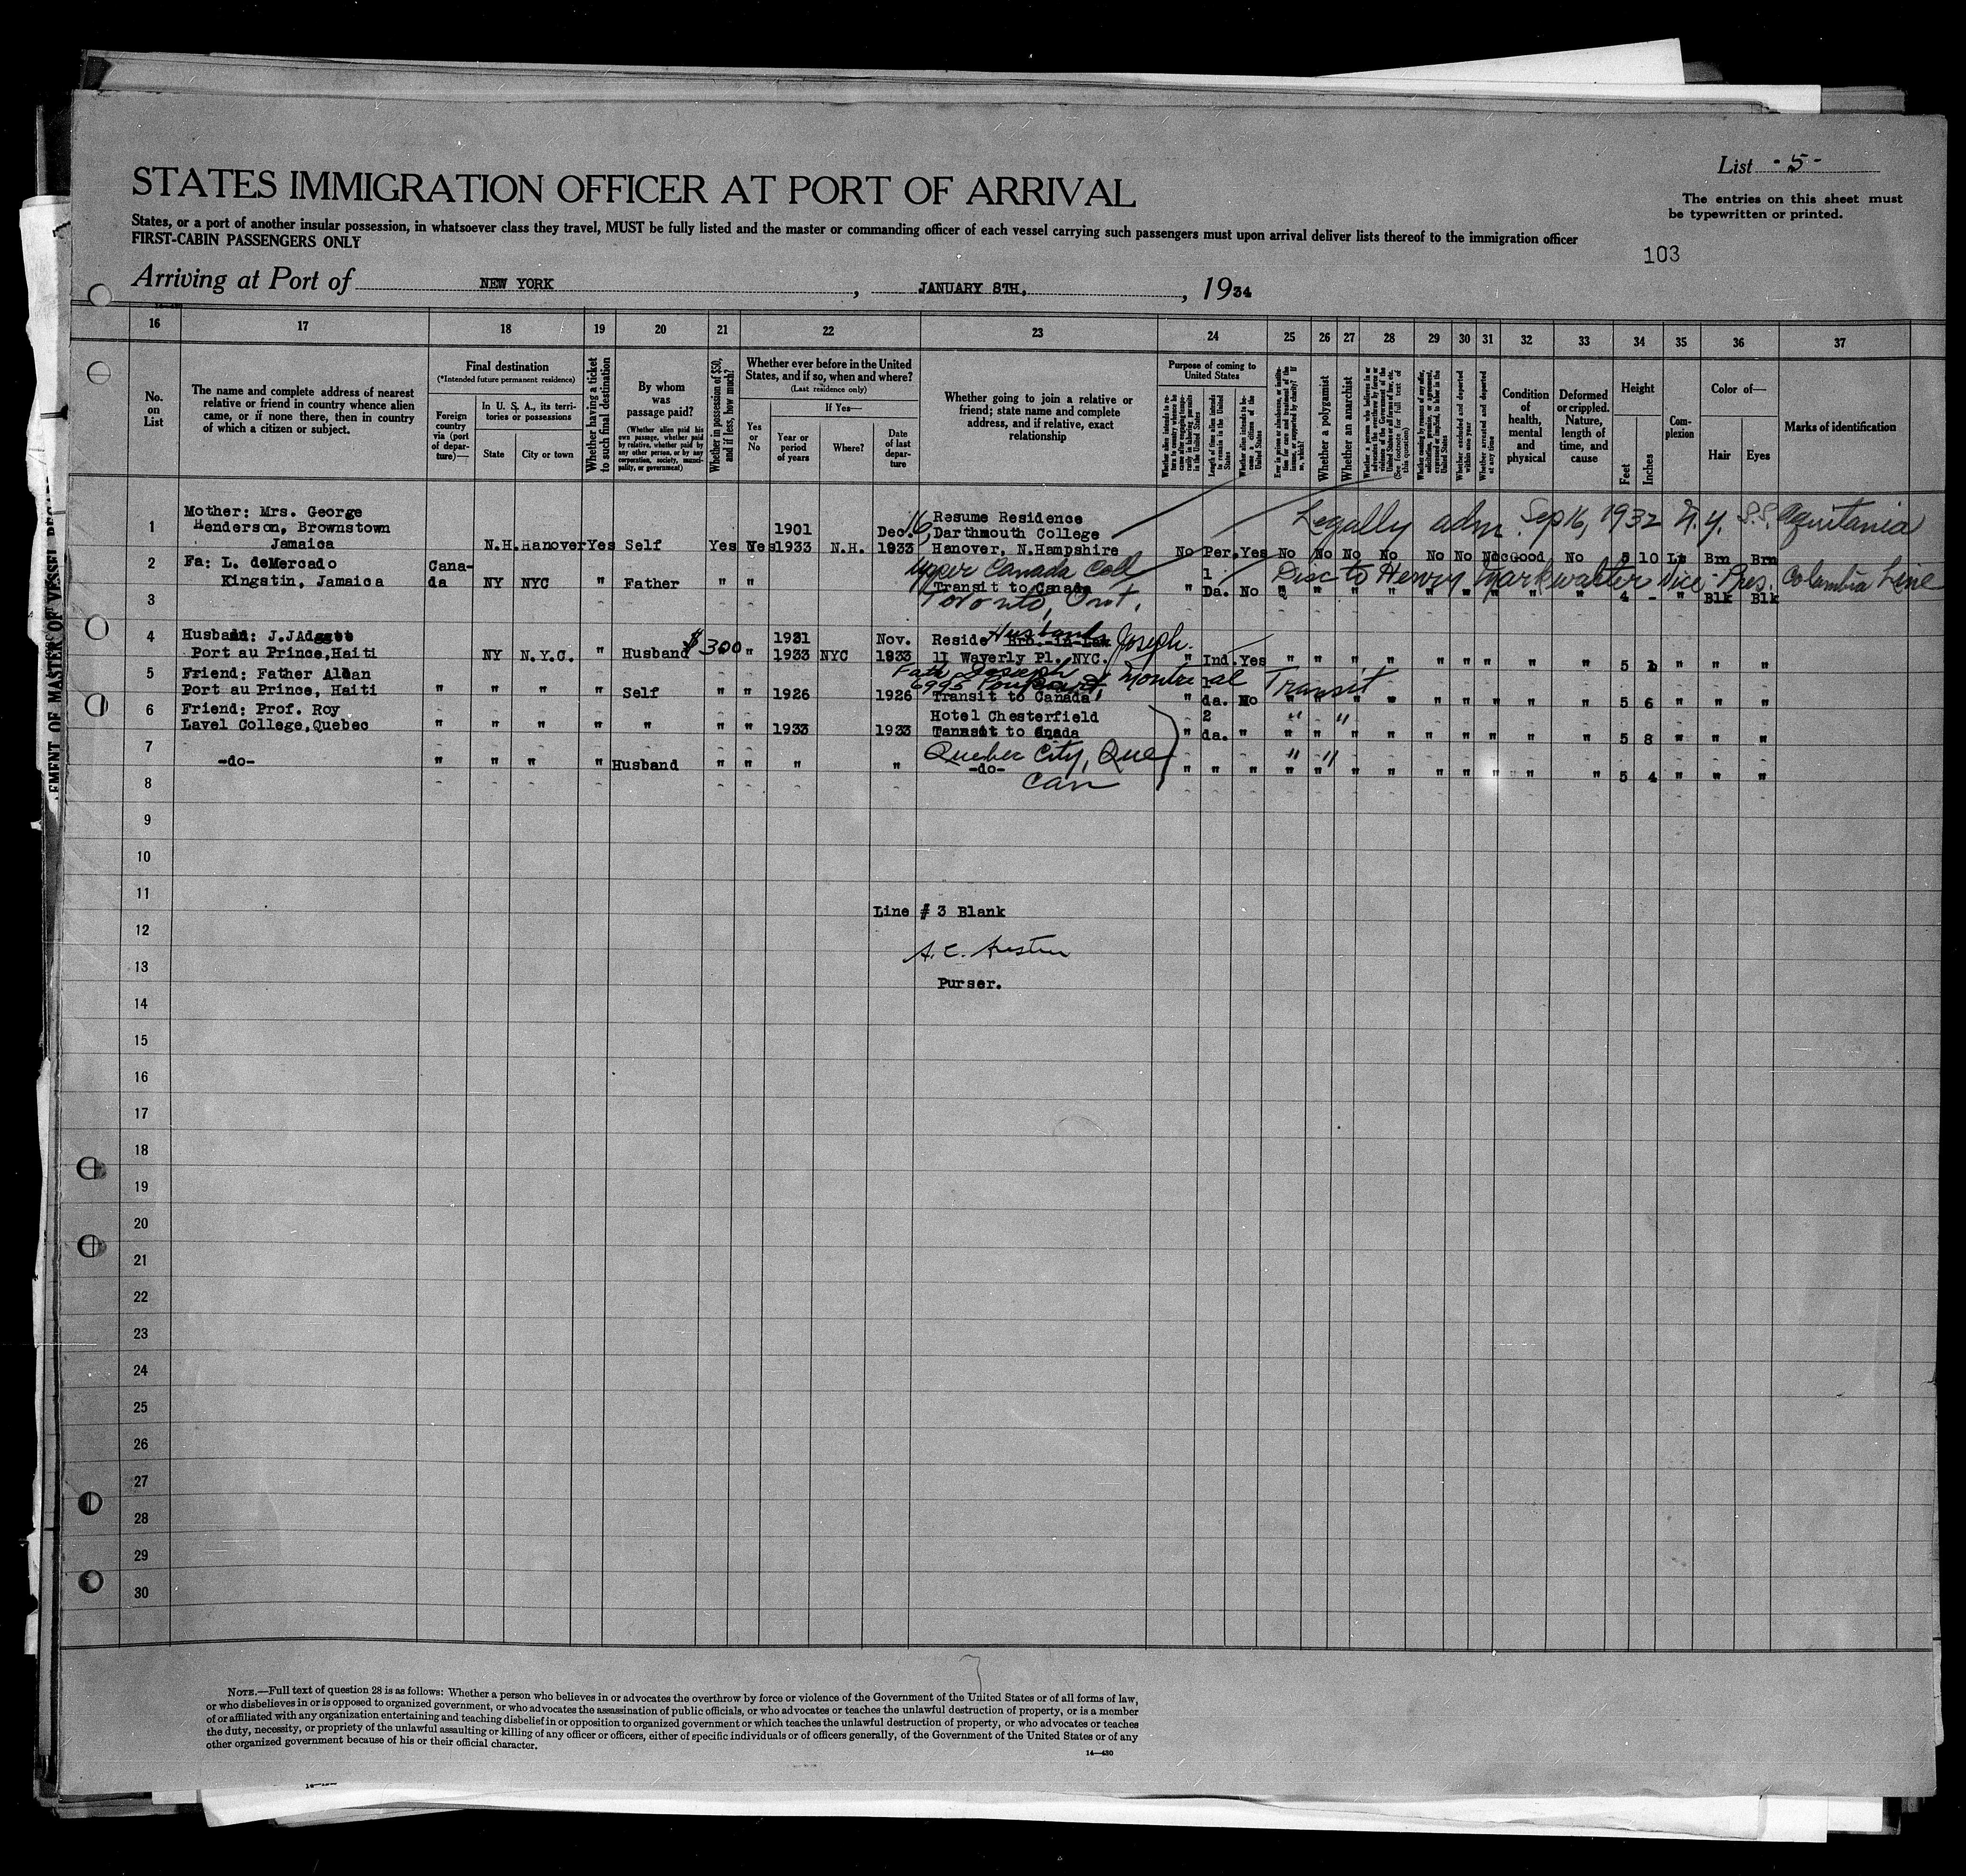 List - 5 -
STATES IMMIGRATION OFFICER AT PORT OF ARRIVAL
The entries on this sheet must
be typewritten or printed.
States, or a port of another insular possession, in whatsoever class they travel, MUST be fully listed and the master or commanding officer of each vessel carrying such passengers must upon arrival deliver lists thereof to the immigration officer
FIRST-CABIN PASSENGERS ONLY
103
Arriving at Port of NEW YORK, JANUARY 8TH, 1934
16 17 18 19 20 21 22 23 24 25 26 27 28 29 30 31 32 33 34 35 36 37
No.
on
List
The name and complete address of nearest
relative or friend in country whence alien
came, or if none there, then in country
of which a citizen or subject.
Final destination
(*Intended future permanent residence)
Foreign
country
via (port
of depar-
ture)—
In U. S. A., its terri-
tories or possessions
State
City or town
Whether having a ticket
to such final destination
By whom
was
passage paid?
(Whether alien paid his
own passage, whether paid
by relative, whether paid by
any other person, or by any
corporation, society, munici-
pality, or government)
Whether in possession of $50,
and if less, how much?
Whether ever before in the United
States, and if so, when and where?
(Last residence only)
Yes
or
No
If Yes—
Year or
period
of years
Where?
Date
of last
depar-
ture
Whether going to join a relative or
friend; state name and complete
address, and if relative, exact
relationship
Purpose of coming to
United States
Length of time alien intends
to remain in the United
States
Whether alien intends to be-
come a citizen of the
United States
Whether a polygamist
Whether an anarchist
Whether excluded and deported
within one year
Whether arrested and deported
at any time
Condition
of
health,
mental
and
physical
Deformed
or crippled.
Nature,
length of
time, and
cause
Height
Feet
Inches
Com-
plexion
Color of—
Hair
Eyes
Marks of identification
Mother: Mrs. George
1 Henderson, Brownstown 1901 Dec. 16, Resume Residence Legally adm. Sep 16, 1932 N.Y. S.S. Aquitania
Dartmouth College
Jamaica N.H. Hanover Yes Self Yes Yes 1933 N.H. 1933 Hanover, N.Hampshire No Per. Yes No No No No No No No Good No 5 10 Lt Brn Brn
2 Fa: L. deMercado Cana- Upper Canada Coll 1 Disc to Henry Markwalter Vice-Pres. Columbia Line
Kingstin, Jamaica da NY NYC " Father " " Transit to Canada " Da. No " " " " " " " " " 4 - " Blk Blk
3 Toronto, Ont.
4 Husband: J.J 1931 Nov. Reside Husband Bro.-in-Law Joseph.
Port au Prince, Haiti NY N.Y.C. " Husband $300 " " 1933 NYC 1933 11 Waverly Pl. NYC. " Ind. Yes " " " " " " " " " 5 " " "
5 Friend: Father Joseph Montreal 1 Transit
Port au Prince, Haiti " " " " Self " " 1926 1926 6995 Transit to Canada " da. No " " " " " " " " " 5 6 " " "
6 Friend: Prof. Roy Hotel Chesterfield 2 " "
Lavel College, Quebec " " " " " " " 1933 1933 da. " " " " " " " " " " 5 8 " " "
7 Quebec City, Que " "
-do- " " " " Husband " " " " -do- " " " " " " " " " " " " 5 4 " " "
8 Can
9
10
11
Line # 3 Blank
12
A. C. Austin
13
Purser.
14
15
16
17
18
19
20
21
22
23
24
25
26
27
28
29
30
NOTE.—Full text of question 28 is as follows: Whether a person who believes in or advocates the overthrow by force or violence of the Government of the United States or of all forms of law,
or who disbelieves in or is opposed to organized government, or who advocates the assassination of public officials, or who advocates or teaches the unlawful destruction of property, or is a member
of or affiliated with any organization entertaining and teaching disbelief in or opposition to organized government or which teaches the unlawful destruction of property, or who advocates or teaches
the duty, necessity, or propriety of the unlawful assaulting or killing of any officer or officers, either of specific individuals or of officers generally, of the Government of the United States or of any
other organized government because of his or their official character.
14—430